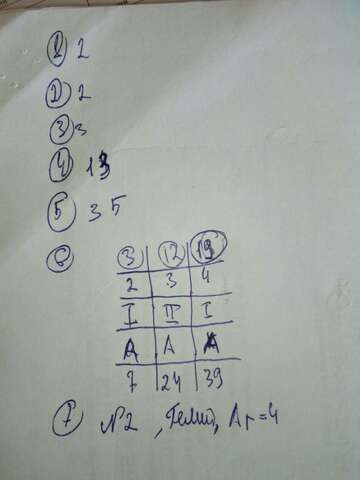 ① 2
② 2
③ 3
④ 13
⑤ 35
⑥ ③ ⑫ ⑲
2 3 4
I II I
А А А
7 24 39
⑦ №2, Гелий, Ar=4